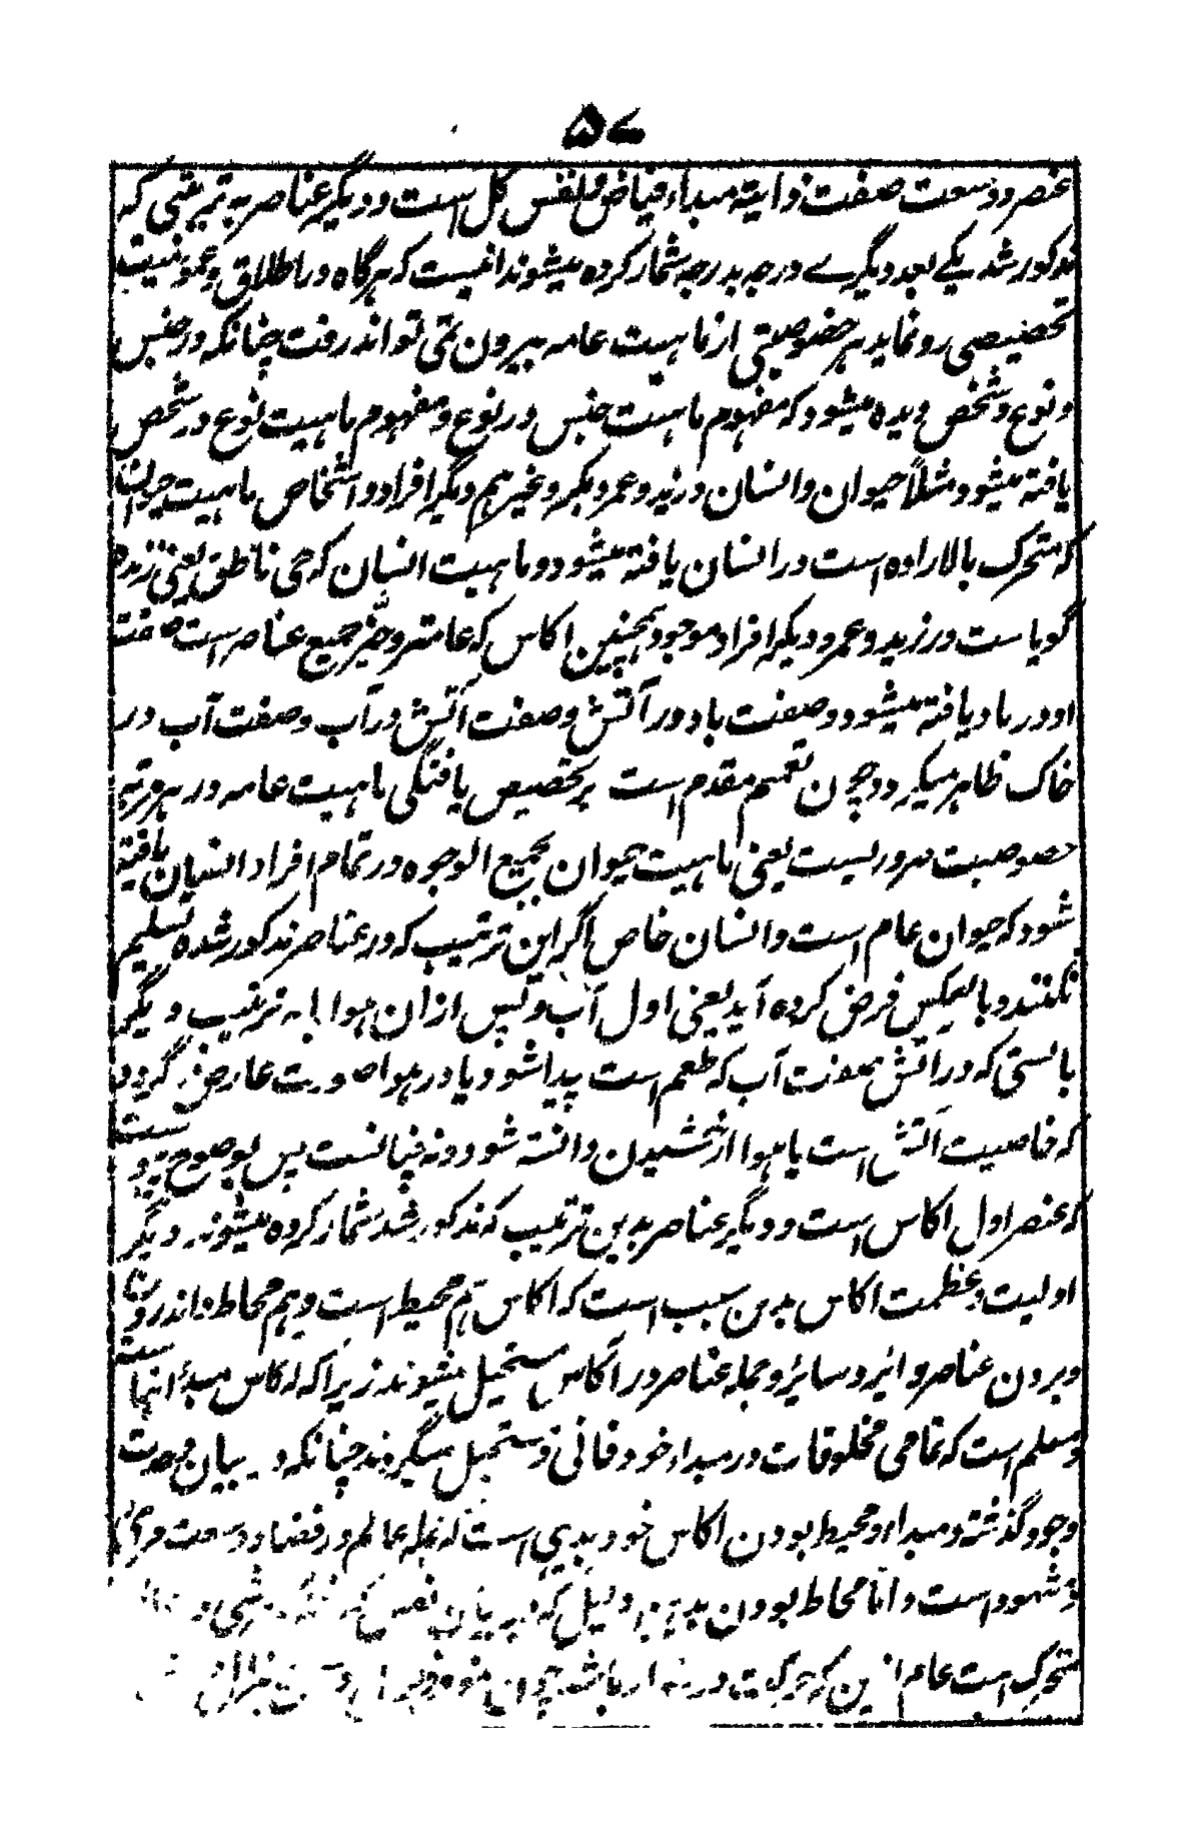 ۵۷
عنصر و وسعت صفت ذاتیه مبداء فیاض و نفس کل است و دیگر عناصر به ترتیبی که
مذکور شد یکے بعد دیگرے درجه بدرجه شمار کرده میشوند انیست که هرگاه در اطلاق و عمومیت
تخصیصی رو نماید هر خصوصیتی از ماهیت عامه بیرون نمی تواند رفت چنانکه در جنس
و نوع و شخص دیده میشود که مفهوم ماهیت جنس در نوع و مفهوم ماهیت نوع در شخص
یافته میشود مثلاً حیوان و انسان و زید و عمر و بکر و غیرهم دیگر افراد و اشخاص ماهیت حیوان
که متحرک بالاراده است در انسان یافته میشود و ماهیت انسان که حی ناطق یعنی زنده
گویاست در زید و عمر و دیگر افراد موجود همچنین اکاس که عامتر و حیز جمیع عناصر است صفت
او در باد یافته میشود و صفت باد در آتش و صفت آتش در آب و صفت آب در
خاک ظاهر میگردد چون تعمیم مقدم است بر تخصیص یافتگی ماهیت عامه در هر مرتبه
خصوصیت ضروریست یعنی ماهیت حیوان بجمیع الوجوه در تمام افراد انسان یافته
شود که حیوان عام است و انسان خاص اگر این ترتیب که در عناصر مذکور شده تسلیم
نکنند و بالعکس فرض کرده آید یعنی اول آب و پس ازان هوا یا به ترتیب دیگر
بایستی که در آتش صفت آب که طعم است پیدا شود یا در هوا صورت عارض گردد
که خاصیت آتش است یا هوا از چشیدن دانسته شود و نه چنانست پس بوضوح پیوست
که عنصر اول اکاس است و دیگر عناصر بدین ترتیب که مذکور شد شمار کرده میشوند دیگر
اولیت و عظمت اکاس بدین سبب است که اکاس هم محیط است و هم محاط و اندرون
و برون عناصر دائر و سائر و جمله عناصر در آکاس مستحیل میشوند زیرا که اکاس مبدأ انهاست
و مسلم است که تمامی مخلوقات در مبداء خود فانی و مستحیل میگردند چنانکه در بیان وحدت
وجود گذشت و مبداء و محیط بودن اکاس خود بدیهی است که جمله عالم در فضا و وسعت
و شهود است و اما محاط بودن دلیل که در بیان نفس
متحرک است عام ازین که حرکت در